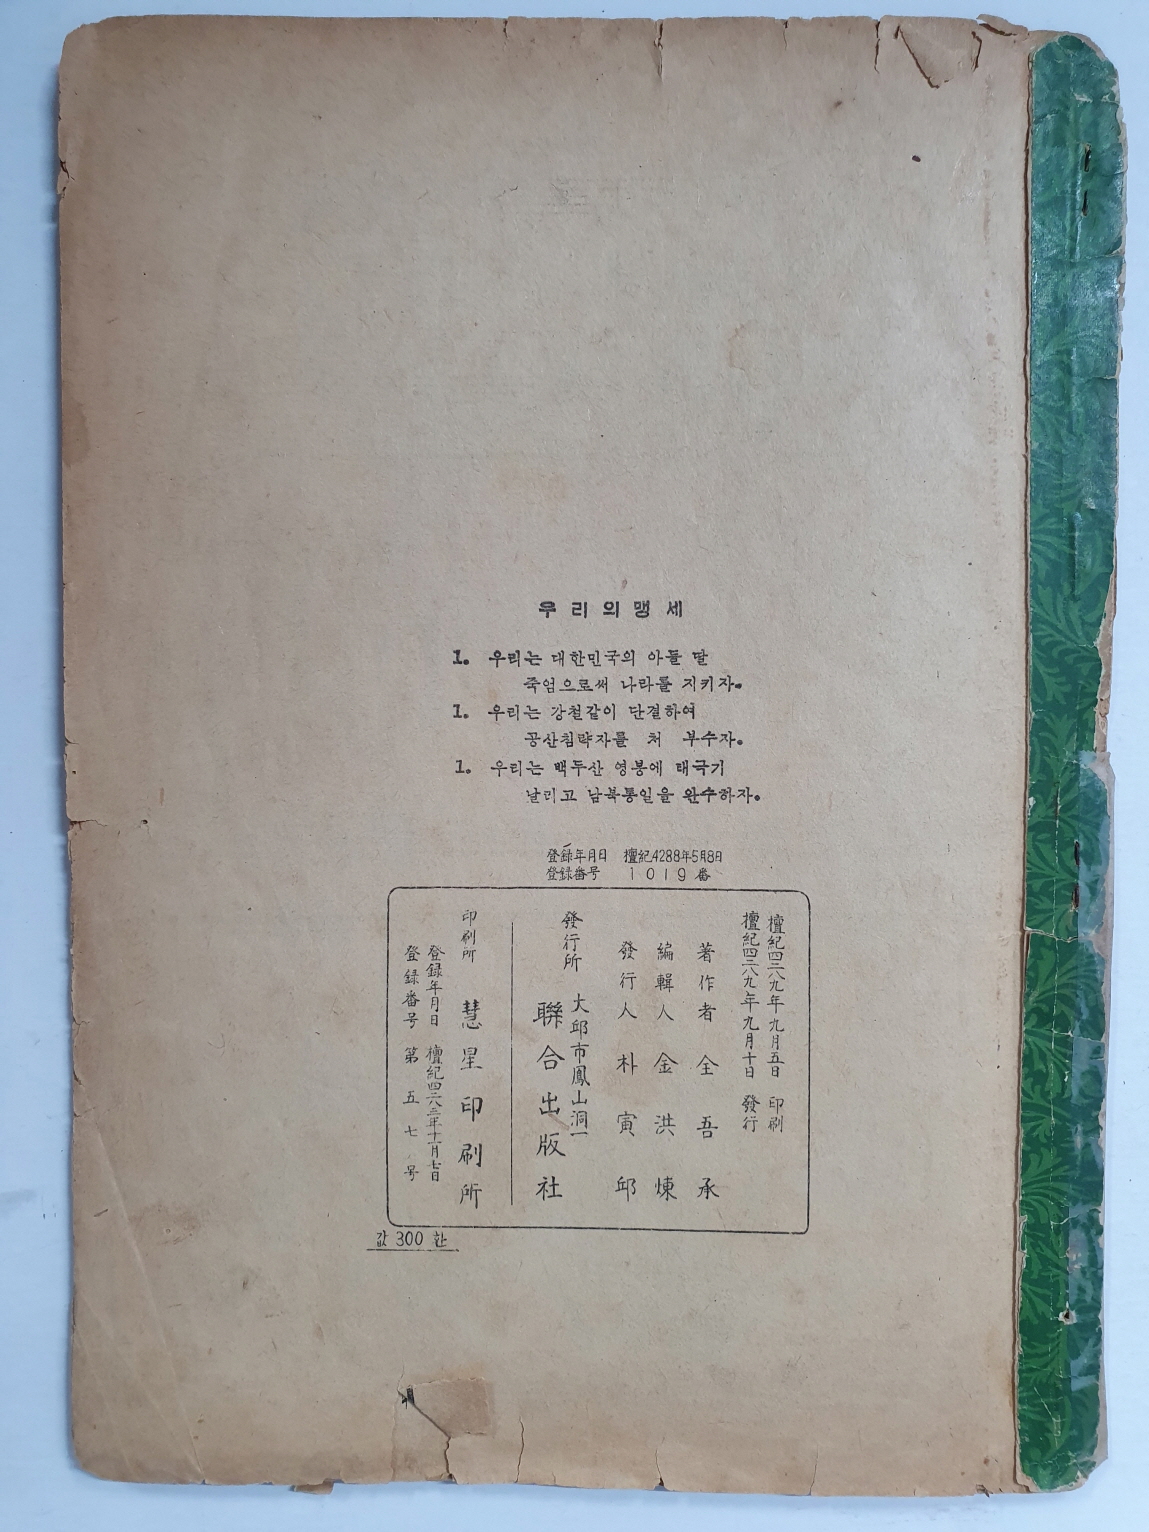 우리의맹세
1. 우리는 대한민국의 아들 딸
죽엄으로써 나라를 지키자.
1. 우리는 강철같이 단결하여
공산침략자를 처 부수자.
1. 우리는 백두산 영봉에 태극기
날리고 남북통일을 완수하자.
登録年月日 檀紀4288年5月8日
登録番号 1019番
檀紀四二八九年 九月五日 印刷
檀紀四二八九年 九月十日 發行
著作者 全吾承
編輯人 金洪煉
發行人 朴寅邱
發行所 大邱市鳳山洞一
聯合出版社
印刷所 慧星印刷所
登録年月日 檀紀四二八三年十一月七日
登録番号 第五七号
값 300 환